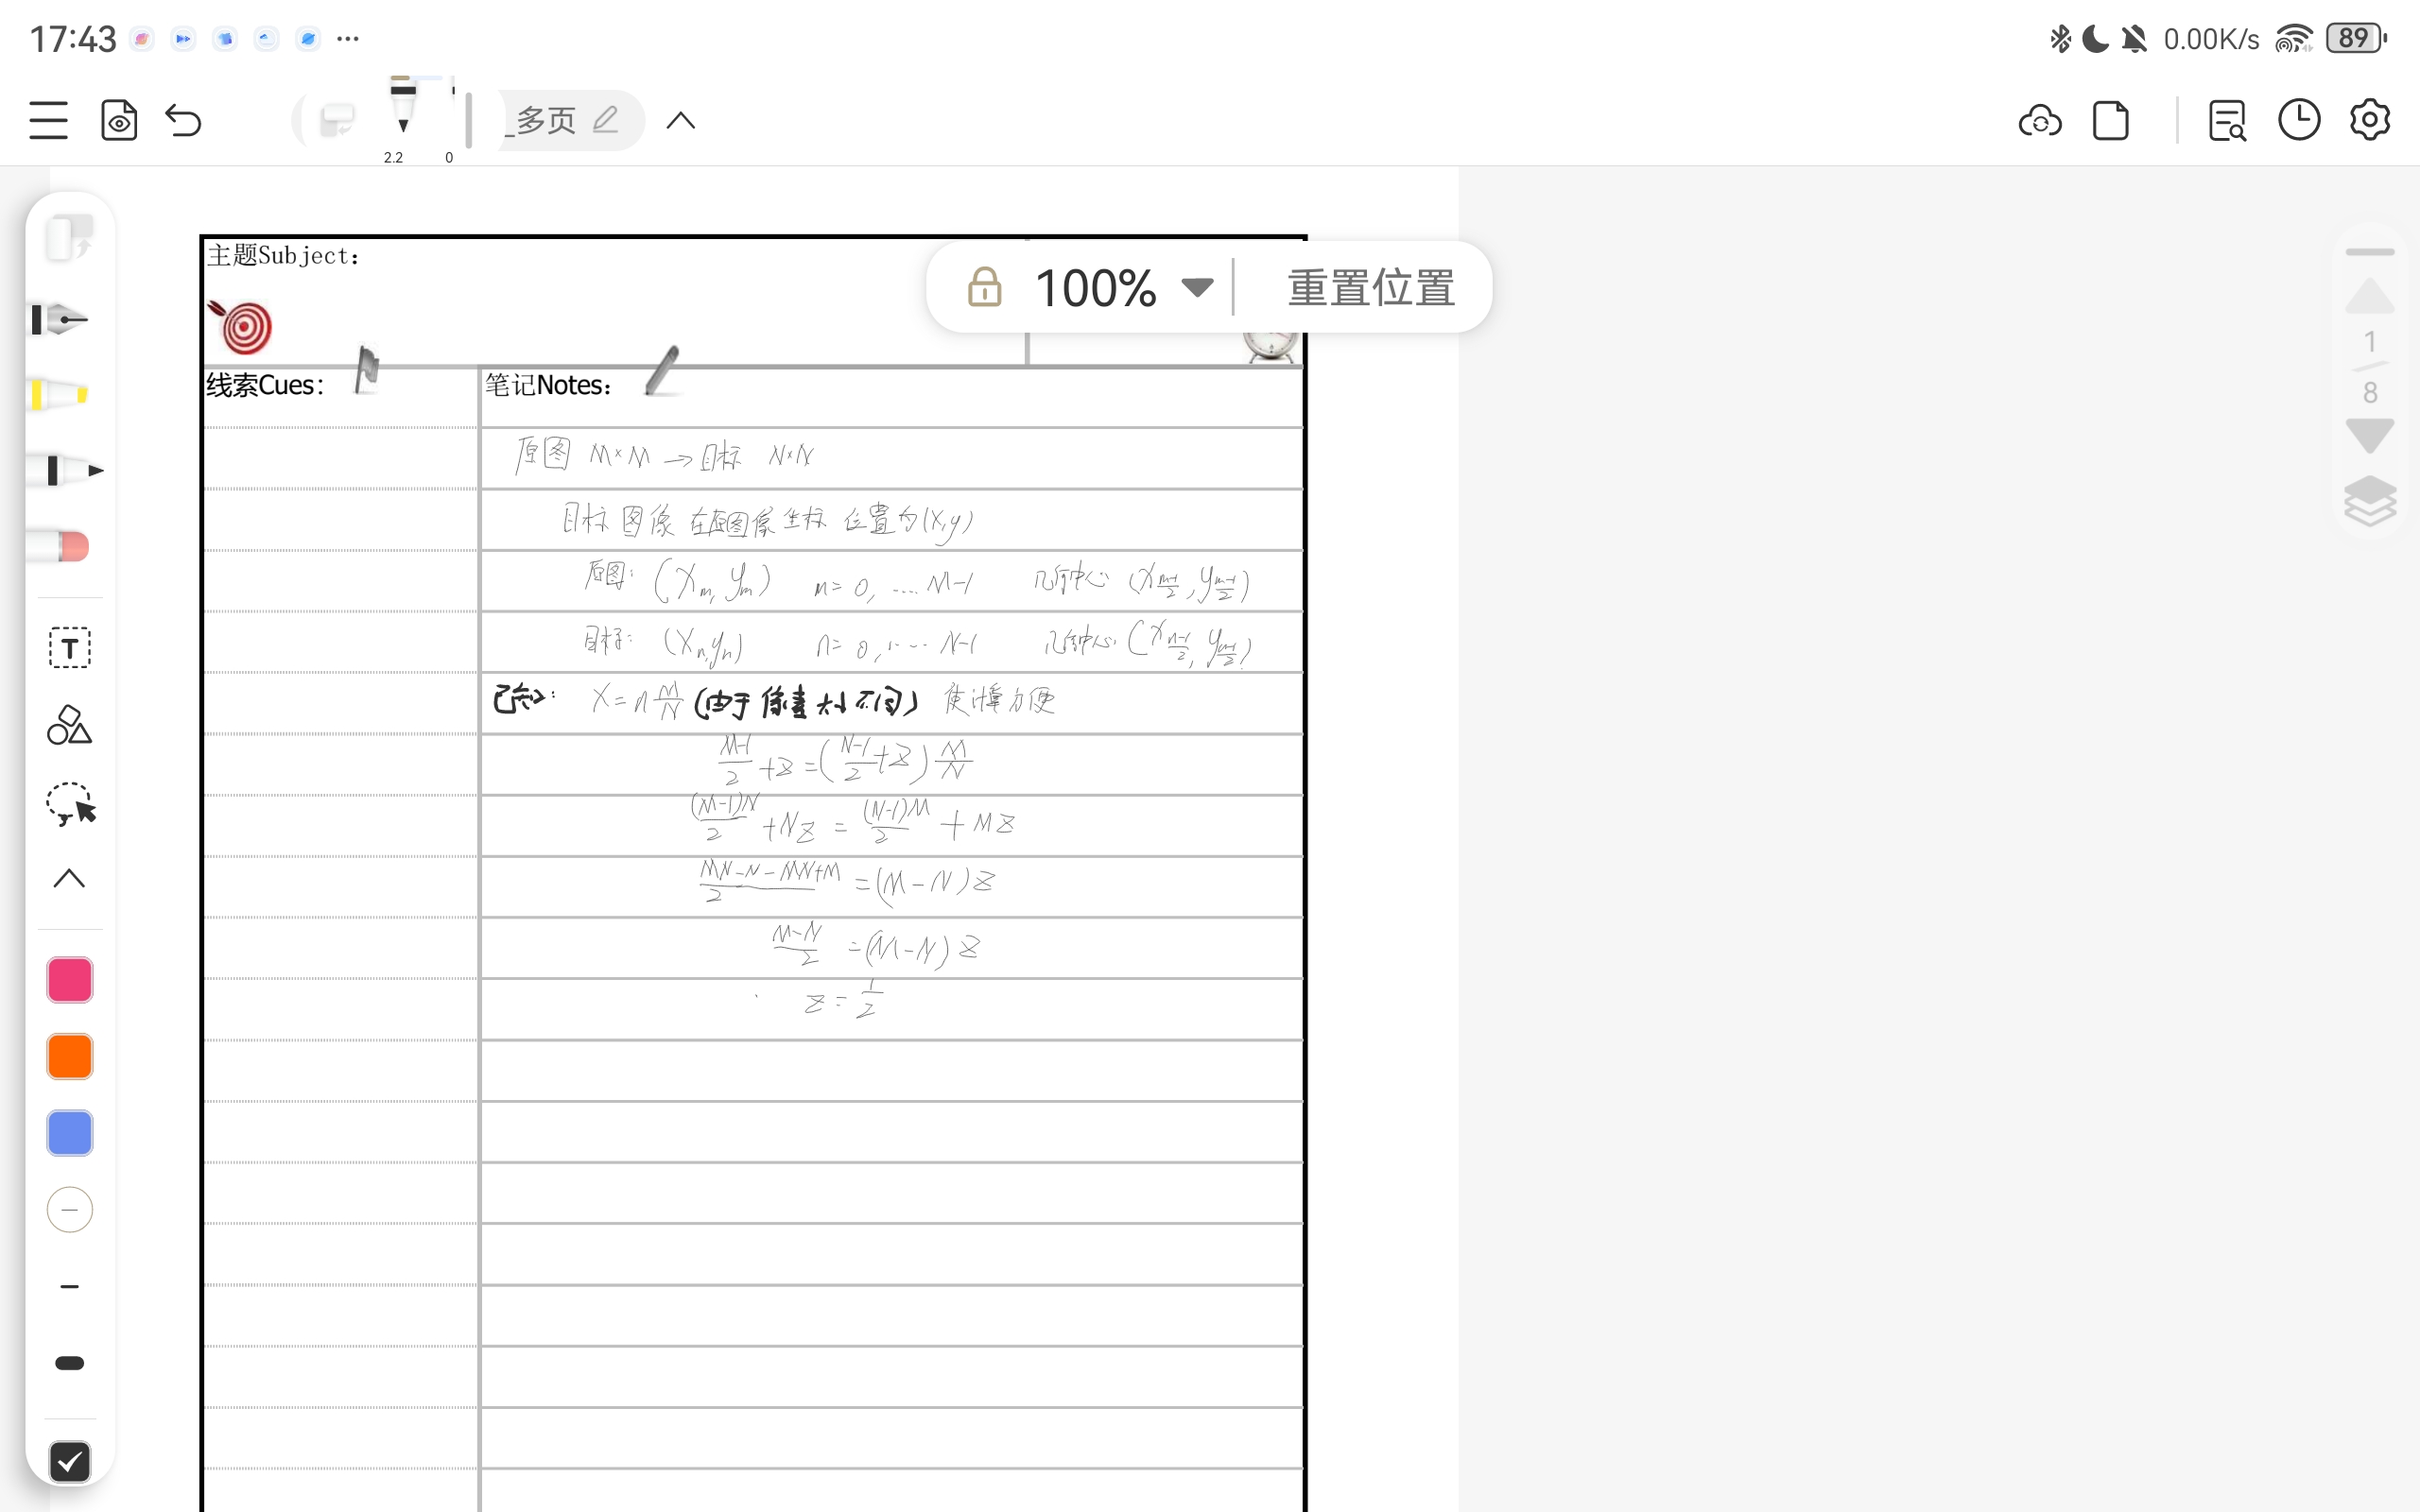 17:43 ... 0.00K/s 89
_多页
2.2 0
主题Subject:
100% 重置位置
线索Cues: 笔记Notes:
1
8
T
原图 M×M → 目标 N×N
目标图像在原图像坐标位置为(x,y)
原图: (Xm, ym) m=0, .... M-1 几何中心 (X(m-1)/2, y(m-1)/2)
目标: (Xn, yn) n=0, .... N-1 几何中心 (X(n-1)/2, y(n-1)/2)
已知: X=n M/N (由于像素大小不同) 使计算方便
(M-1)/2 +z = ((N-1)/2 +z) M/N
(M-1)N/2 +Nz = (N-1)M/2 + Mz
(MN-N-MN+M)/2 = (M-N)z
(M-N)/2 = (M-N) z
z = 1/2